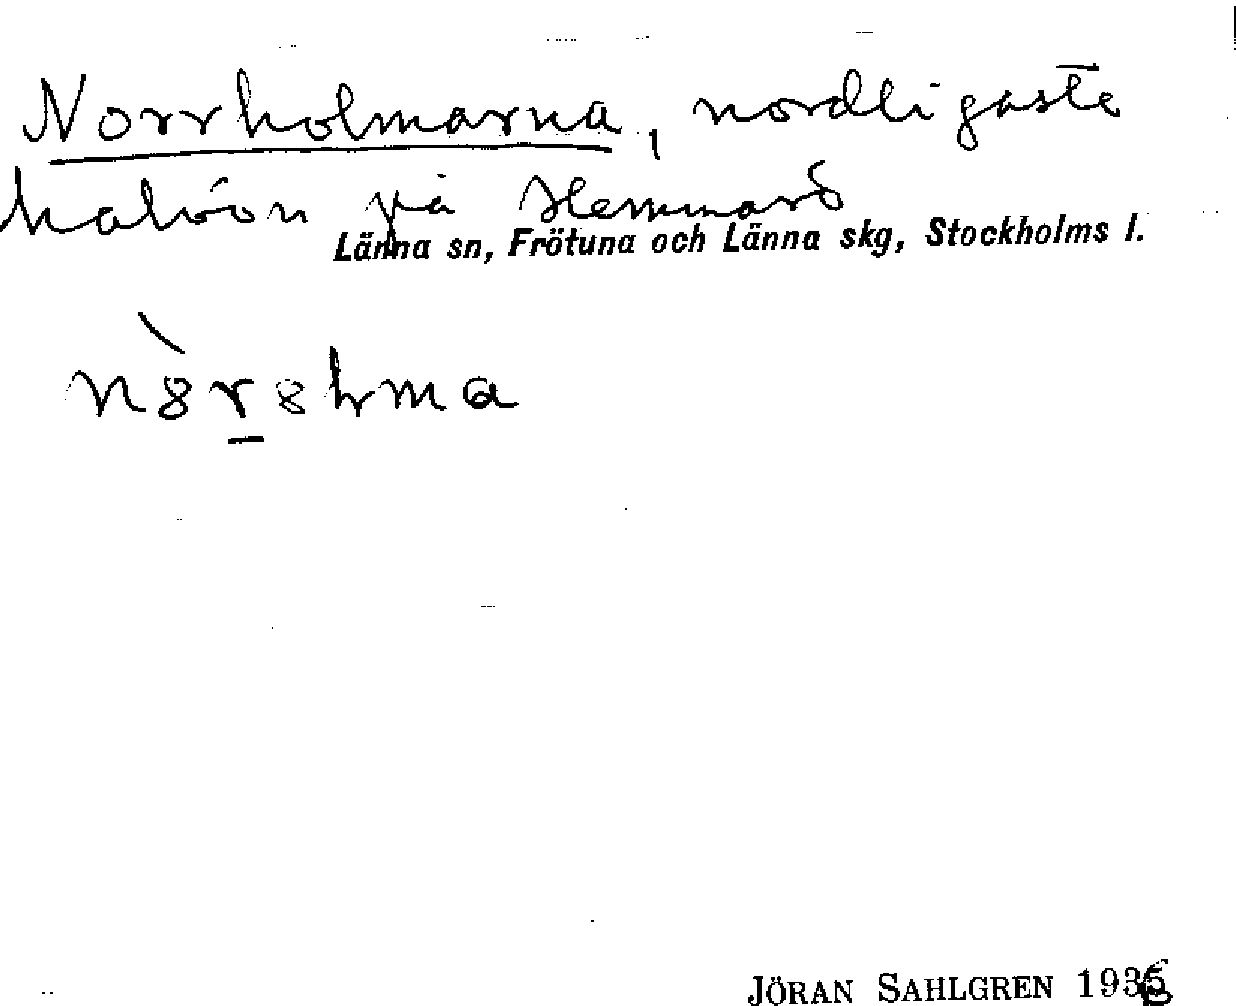 Norrholmarna, nordligaste
halvön på Hemmarö
Länna sn, Frötuna och Länna skg, Stockholms l.
JÖRAN SAHLGREN 1936